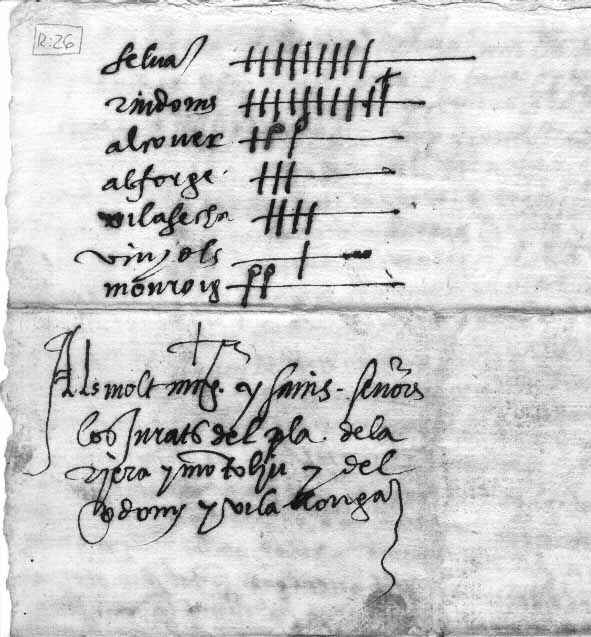 R:26
selva
riudoms
alcover
alforge
vilasecha
vinyols
monroig
Als molt mag. y savis señors
los Jurats del pla dela
riera y mōtoliu y del
codony y vila llonga